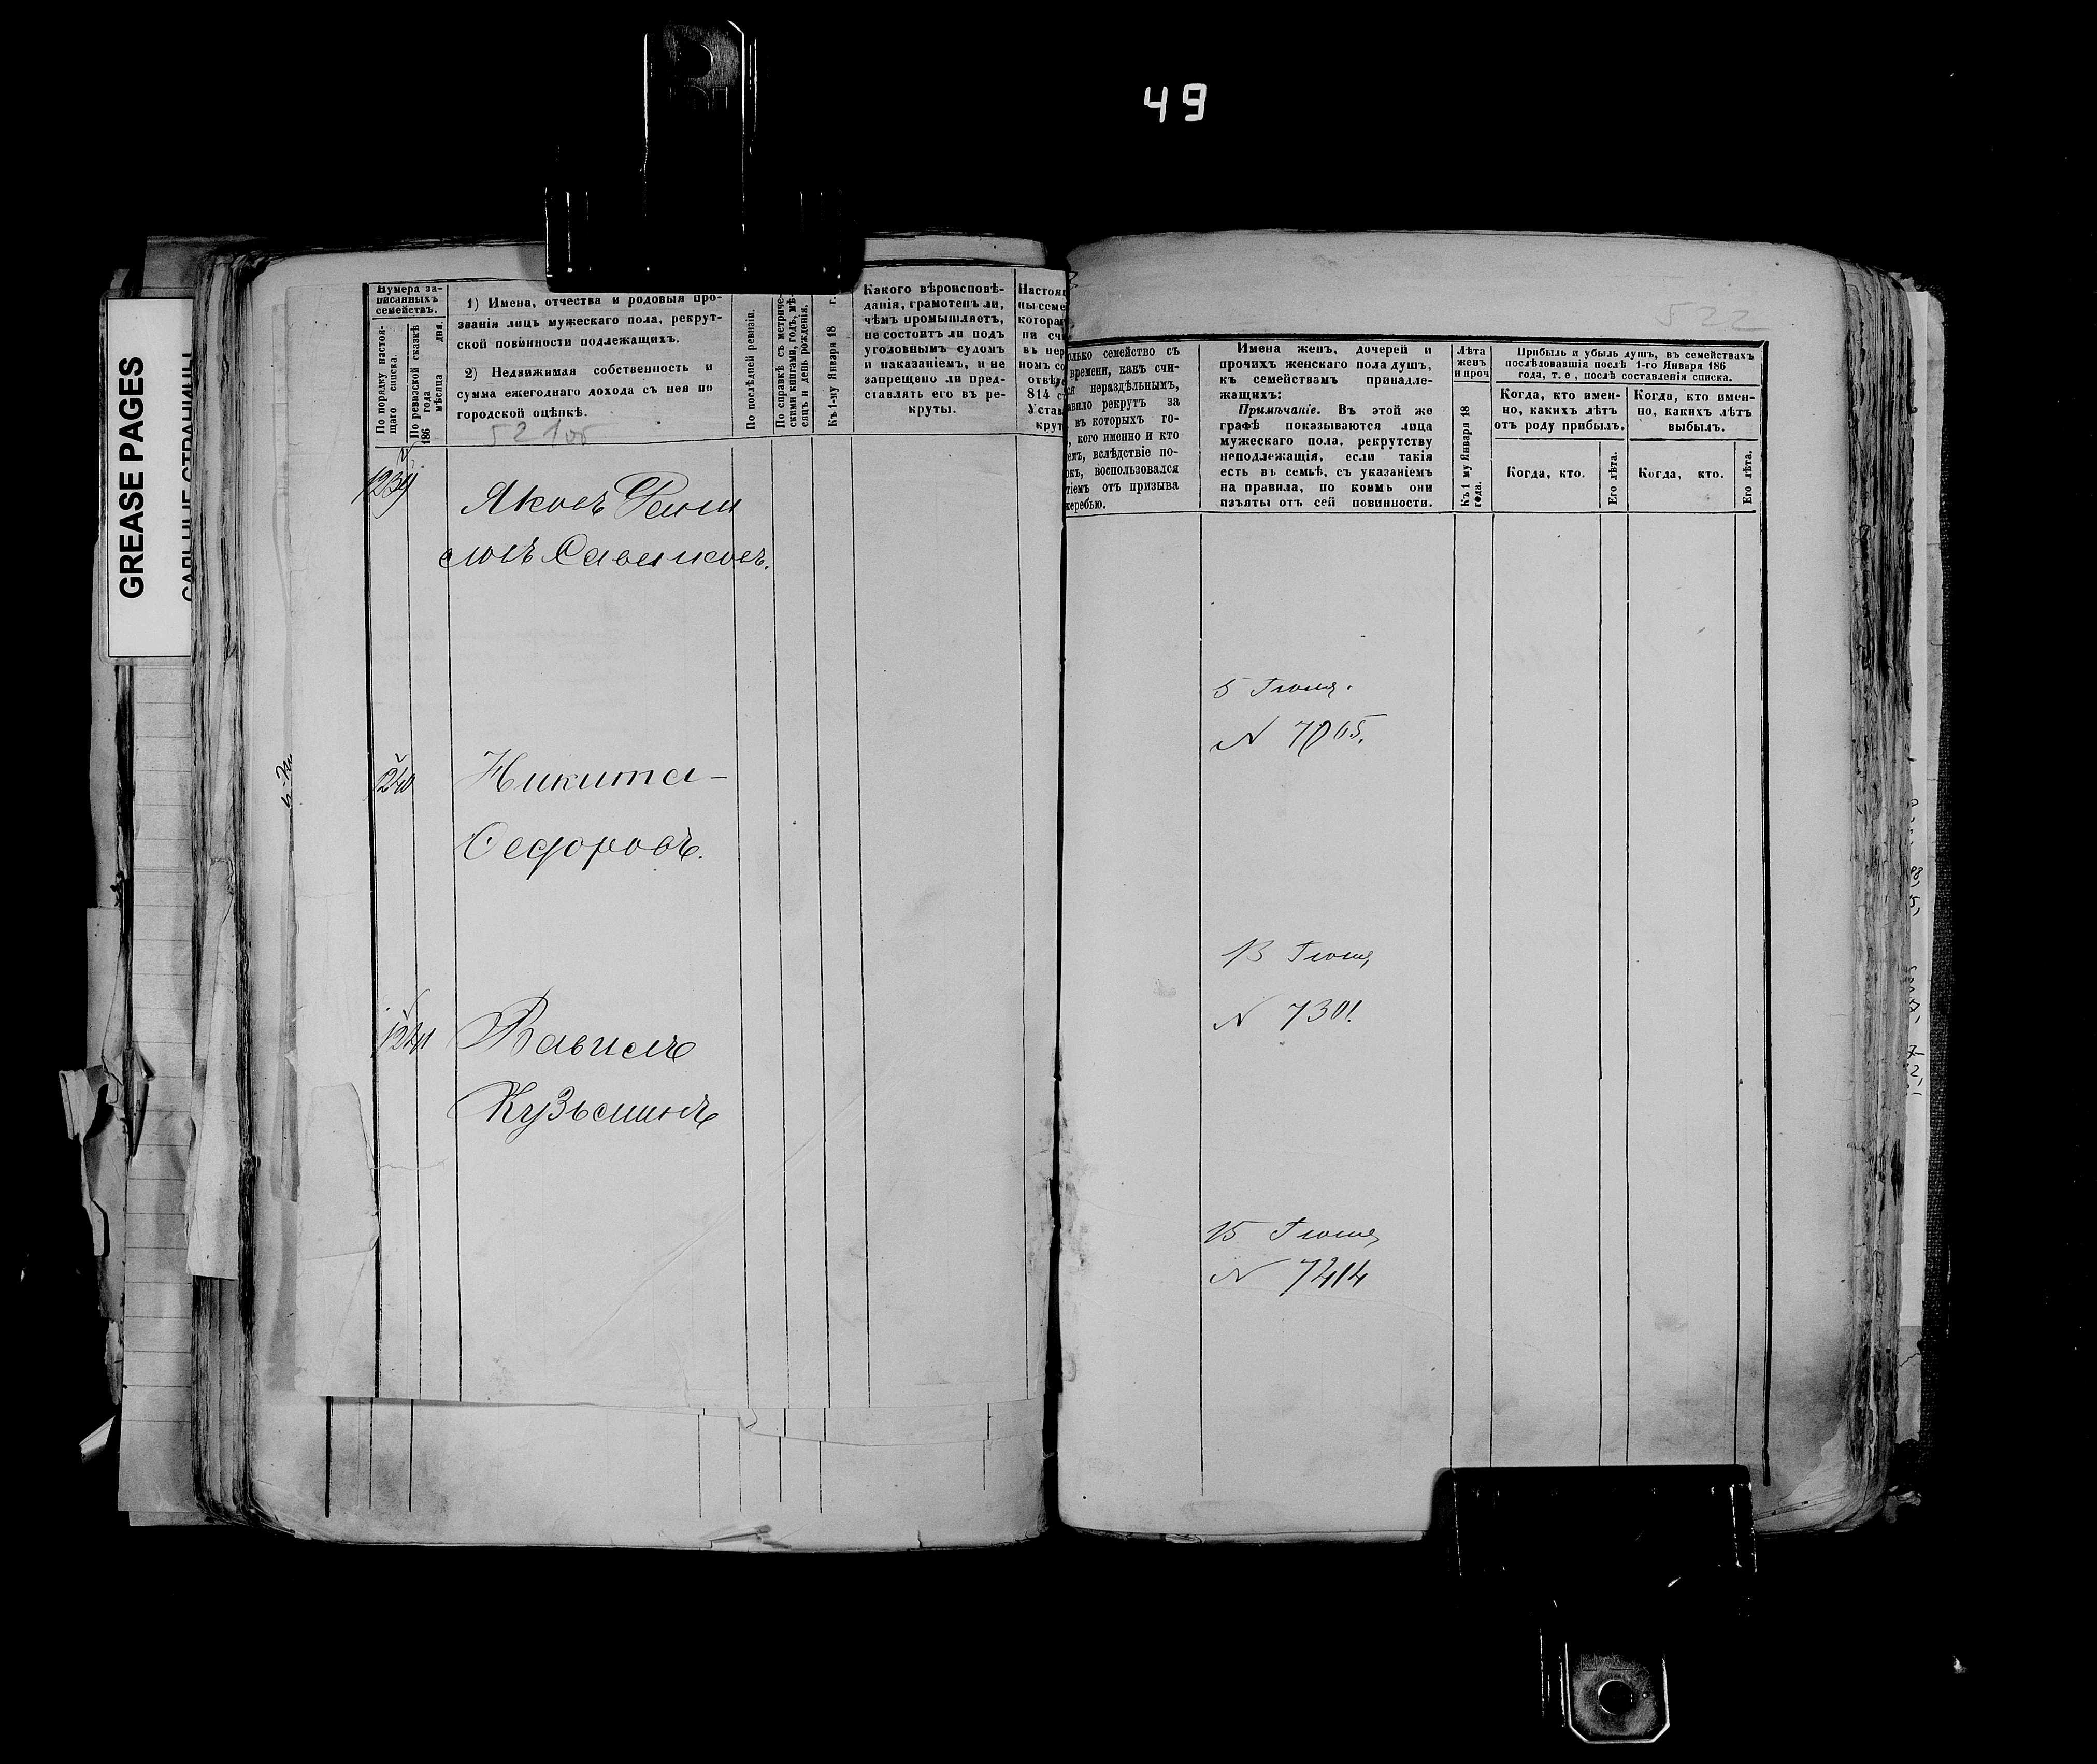 49
GREASE PAGES
САЛЬНЫЕ СТРАНИЦЫ
Нумера за-
писанныхъ
семействъ.
По порядку настоя-
щаго списка.
По ревизской сказкѣ
186 года
мѣсяца дня.
1) Имена, отчества и родовыя про-
званія лицъ мужескаго пола, рекрут-
ской повинности подлежащихъ.
2) Недвижимая собственность и
сумма ежегоднаго дохода съ нея по
городской оцѣнкѣ.
По послѣдней ревизіи.
По справкѣ съ метриче-
скими книгами, годъ, мѣ-
сяцъ и день рожденія.
Къ 1-му Января 18 г.
Какого вѣроисповѣ-
данія, грамотенъ ли,
чѣмъ промышляетъ,
не состоитъ ли подъ
уголовнымъ судомъ
и наказаніемъ, и не
запрещено ли пред-
ставлять его въ ре-
круты.
1239
Яковъ
Савиновъ.
1240
Никита
Федоровъ.
1241
Вавила
Кузьминъ
522
олько семейство съ
времени, какъ счи-
ся нераздѣльнымъ,
авило рекрутъ за
въ которыхъ го-
, кого именно и кто
емъ, вслѣдствіе по-
окъ, воспользовался
тіемъ отъ призыва
жеребью.
Имена женъ, дочерей и
прочихъ женскаго пола душъ,
къ семействамъ принадле-
жащихъ:
Примѣчаніе. Въ этой же
графѣ показываются лица
мужескаго пола, рекрутству
неподлежащія, если такія
есть въ семьѣ, съ указаніемъ
на правила, по коимъ они
изъяты отъ сей повинности.
Лѣта
женъ
и проч
Къ 1 му Января 18
года.
Прибыль и убыль душъ, въ семействахъ
послѣдовавшія послѣ 1-го Января 186
года, т. е, послѣ составленія списка.
Когда, кто имен-
но, какихъ лѣтъ
отъ роду прибылъ.
Когда, кто имен-
но, какихъ лѣтъ
выбылъ.
Когда, кто.
Его лѣта.
Когда, кто.
Его лѣта.
5 Іюня.
N 7065.
13 Іюня
N 7301.
15 Іюня
N 7414